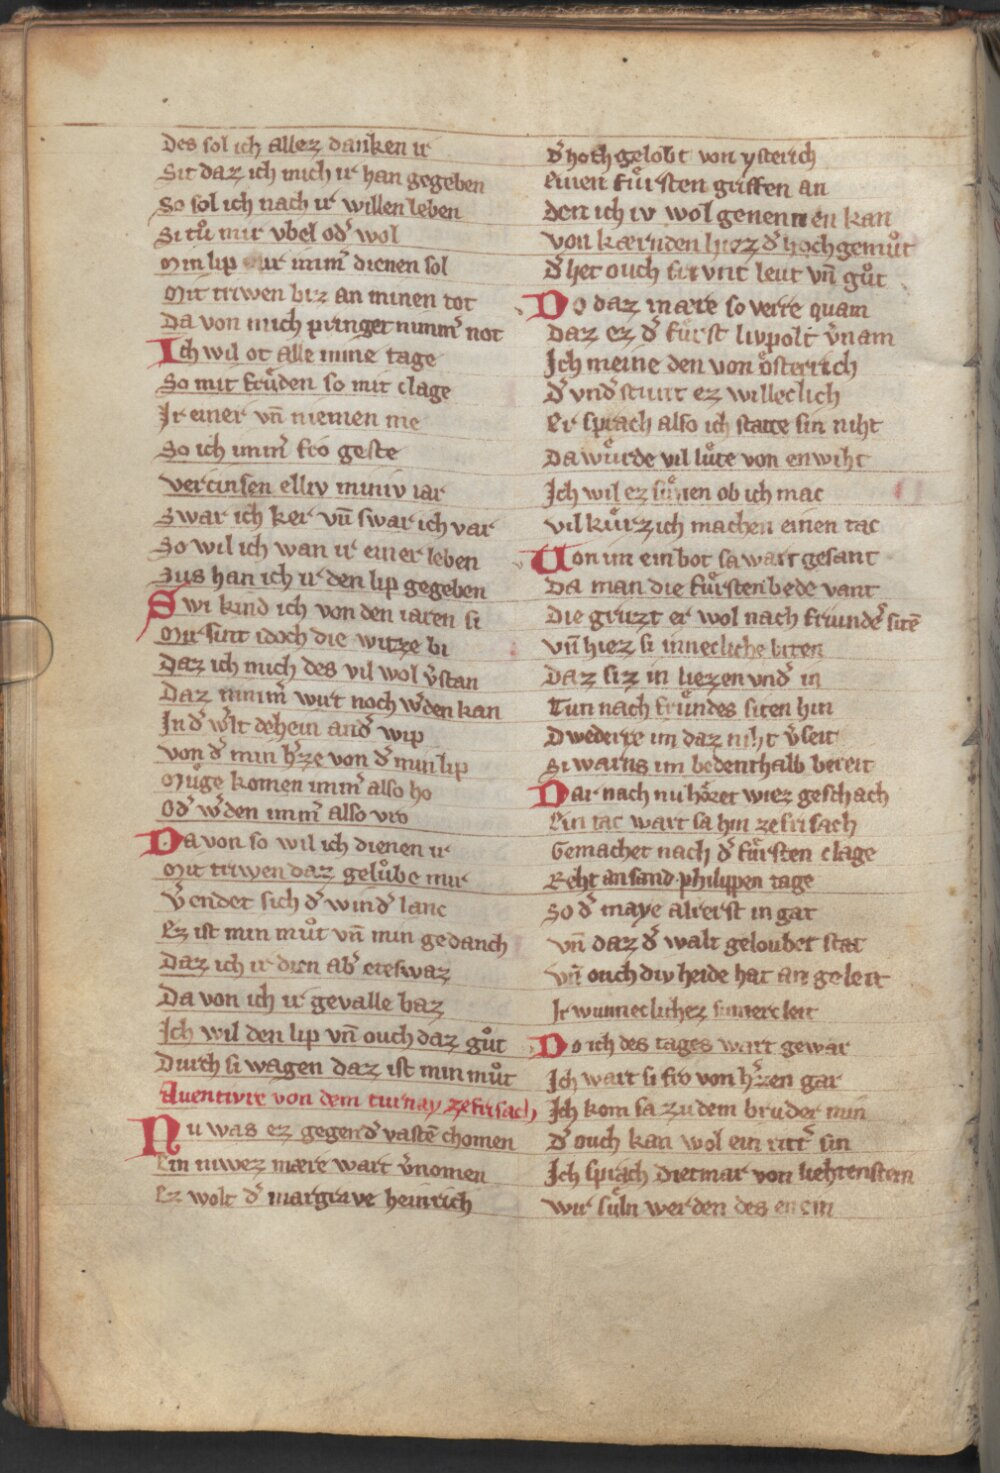 Des sol ich allez danken ir
Sit daz ich mich ir han gegeben
So sol ich nach ir willen leben
Si tůͦ mir vbel od͛ wol
Min lip ir imm͛ dienen sol
Mit triwen biz an minen tot
Da von mich pringet nimm͛ not
Ich wil ot alle mine tage
So mit frůden so mit clage
Ir einer vn̄ niemen me
So ich imm͛ fro geste
vercinsen elliv miniv iar
Swar ich ker vn̄ swar ich var
So wil ich wan ir einer leben
Sus han ich ir den lip gegeben
Swi kind ich von den iaren si
Mir sint idoch die witze bi
Daz ich mich des vil wol v͛stan
Daz nimm͛ wirt noch w͛den kan
In d͛ w͛lt dehein and͛ wip
von d͛ min h͛ze von d͛ min lip
Můge komen imm͛ also ho
Od͛ w͛den imm͛ also vro
Da von so wil ich dienen ir
Mit triwen daz gelůbe mir
v͛endet sich d͛ wind͛ lanc
Ez ist min můt vn̄ min gedanch
Daz ich ir dien ab͛ eteswaz
Da von ich ir gevalle baz
Ich wil den lip vn̄ ouch daz gůt
Durch si wagen daz ist min můt
Aventivre von dem turnay ze frisach
Nu was ez gegen d͛ vastē chomen
Ein niwez mære wart v͛nomen
Ez wolt d͛ margrave heinrich
d͛ hoch gelobt von ysterich
Einen fůrsten griffen an
den ich iv wol genennen kan
von kærnden hiez d͛ hochgemůt
d͛ het ouch frivnt leut vn̄ gůt
Do daz mære so verre quam
Daz ez d͛ fůrst livpolt v͛nam
Ich meine den von ősterrich
d͛ vnd͛stunt ez willeclich
Er sprach also ich statte sin niht
Da wůrde vil lůte von enwiht
Ich wil ez sůnen ob ich mac
vil kůrzich machen einen tac
Von im ein bot sa wart gesant
Da man die fůrsten bede vant
Die gruzt er wol nach friunde sitē
vn̄ hiez si innecliche biten
Daz siz in liezen vnd͛ in
Tun nach frůndes siten hin
Dwederre im daz niht v͛seit
Si warns im bedenthalb bereit
Dar nach nu hőret wiez geschach
Ein tac wart sa hin ze frisach
Gemachet nach d͛ fůrsten clage
Reht an sand philippen tage
So d͛ maye alrerst ingat
vn̄ daz d͛ walt geloubet stat
vn̄ ouch div heide hat an geleit
Ir wunneclichez sumercleit
Do ich des tages wart gewar
Ich wart si fro von h͛zen gar
Ich kom sa zu dem bruder min
d͛ ouch kan wol ein ritt͛ sin
Ich sprach dietmar von liehtenstein
wir suln werden des enein